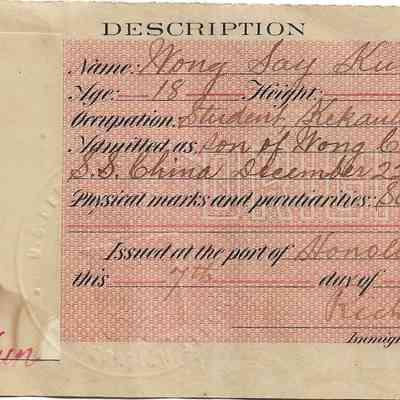 DESCRIPTION
Name: Wong Say Ku
Age: 18 Height:
Occupation: Student, Kekaul
Admitted as: son of Wong C
S.S. China December 22
Physical marks and peculiarities: Sc
Issued at the port of Honol
this 7th day of
Rich
Immig